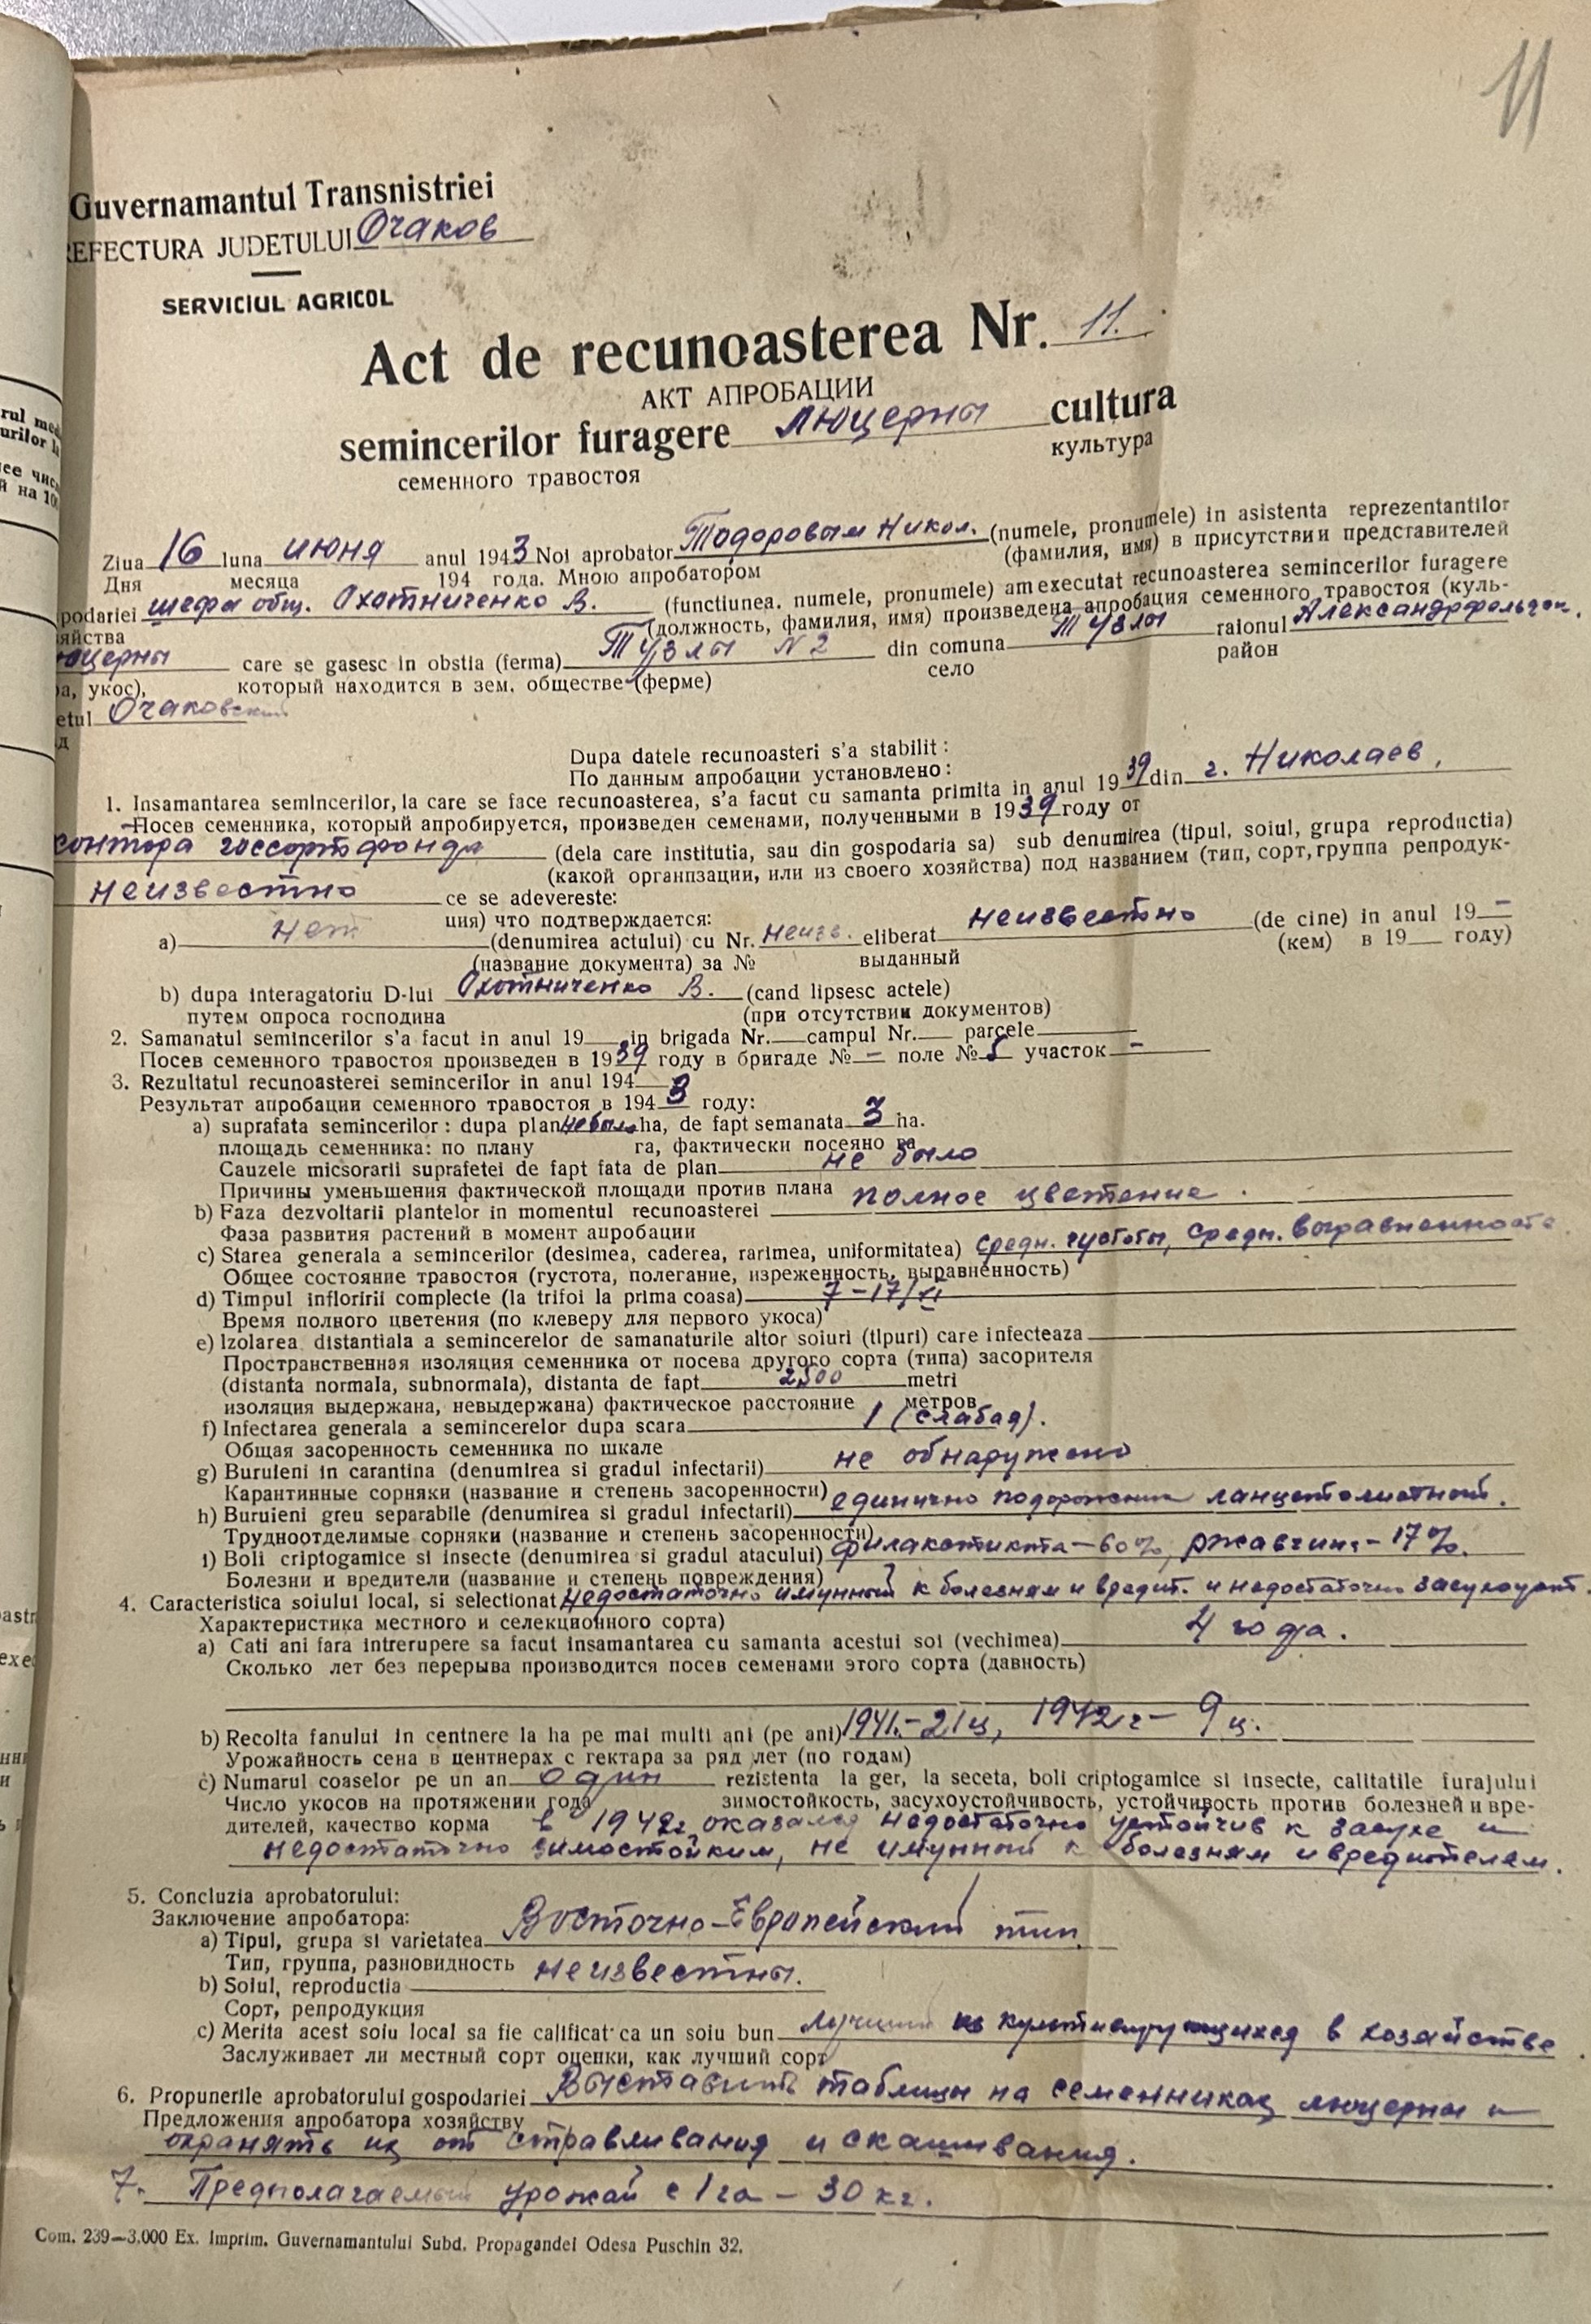 11
Guvernamantul Transnistriei
EFECTURA JUDETULUI Очаков
SERVICIUL AGRICOL
Act de recunoasterea Nr. 11.
АКТ АПРОБАЦИИ
semincerilor furagere люцерны cultura
семенного травостоя культура
Ziua 16 luna июня anul 1943 Noi aprobator Тодоровым Никол. (numele, pronumele) in asistenta reprezentantilor
Дня месяца 194 года. Мною апробатором (фамилия, имя) в присутствии представителей
podariei шефа общ. Охотниченко В. (functiunea. numele, pronumele) am executat recunoasterea semincerilor furagere
яйства (должность, фамилия, имя) произведена апробация семенного травостоя (куль-
юцерны care se gasesc in obstia (ferma) Тузлы N 2 din comuna Тузлы raionul Александрфельдск.
ра, укос), который находится в зем. обществе (ферме) село район
etul Очаковский
д
Dupa datele recunoasteri s'a stabilit:
По данным апробации установлено:
1. Insamantarea semincerilor, la care se face recunoasterea, s'a facut cu samanta primita in anul 1939 din г. Николаев,
Посев семенника, который апробируется, произведен семенами, полученными в 1939 году от
контора госсортфонда (dela care institutia, sau din gospodaria sa) sub denumirea (tipul, soiul, grupa reproductia)
(какой организации, или из своего хозяйства) под названием (тип, сорт, группа репродук-
неизвестно ce se adevereste:
ция) что подтверждается:
a) нет (denumirea actului) cu Nr. неизв. eliberat неизвестно (de cine) in anul 19 –
(название документа) за № выданный (кем) в 19 году)
b) dupa interagatoriu D-lui Охотниченко В. (cand lipsesc actele)
путем опроса господина (при отсутствии документов)
2. Samanatul semincerilor s'a facut in anul 19 in brigada Nr. campul Nr. parcele
Посев семенного травостоя произведен в 1939 году в бригаде № – поле № 5 участок –
3. Rezultatul recunoasterei semincerilor in anul 194 3
Результат апробации семенного травостоя в 1943 году:
a) suprafata semincerilor: dupa plan не было ha, de fapt semanata 3 ha.
площадь семенника: по плану га, фактически посеяно га
Cauzele micsorarii suprafetei de fapt fata de plan не было
Причины уменьшения фактической площади против плана
b) Faza dezvoltarii plantelor in momentul recunoasterei полное цветение.
Фаза развития растений в момент апробации
c) Starea generala a semincerilor (desimea, caderea, rarimea, uniformitatea) средн. густоты, средн. выравненность
Общее состояние травостоя (густота, полегание, изреженность, выравненность)
d) Timpul infloririi complecte (la trifoi la prima coasa) 7–17/VI
Время полного цветения (по клеверу для первого укоса)
e) Izolarea distantiala a semincerelor de samanaturile altor soiuri (tipuri) care infecteaza
Пространственная изоляция семенника от посева другого сорта (типа) засорителя
(distanta normala, subnormala), distanta de fapt 2500 metri
изоляция выдержана, невыдержана) фактическое расстояние метров
f) Infectarea generala a semincerelor dupa scara 1 (слабая).
Общая засоренность семенника по шкале
g) Buruieni in carantina (denumirea si gradul infectarii) не обнаружено
Карантинные сорняки (название и степень засоренности)
h) Buruieni greu separabile (denumirea si gradul infectarii) единично подорожник ланцетолистный.
Трудноотделимые сорняки (название и степень засоренности)
i) Boli criptogamice si insecte (denumirea si gradul atacului) – 60%, ржавчина – 17%.
Болезни и вредители (название и степень повреждения)
4. Caracteristica soiului local, si selectionat недостаточно имунный к болезням и вредит. и недостаточно засухоуст.
Характеристика местного и селекционного сорта)
a) Cati ani fara intrerupere sa facut insamantarea cu samanta acestui soi (vechimea) 4 года.
Сколько лет без перерыва производится посев семенами этого сорта (давность)
b) Recolta fanului in centnere la ha pe mai multi ani (pe ani) 1941 – 21 ц, 1942 г – 9 ц.
Урожайность сена в центнерах с гектара за ряд лет (по годам)
c) Numarul coaselor pe un an один rezistenta la ger, la seceta, boli criptogamice si insecte, calitatile furajului
Число укосов на протяжении года зимостойкость, засухоустойчивость, устойчивость против болезней и вре-
дителей, качество корма в 1942 г оказался недостаточно устойчив к засухе и
недостаточно зимостойким, не имунный к болезням и вредителям.
5. Concluzia aprobatorului:
Заключение апробатора:
a) Tipul, grupa si varietatea Восточно-Европейский тип.
Тип, группа, разновидность
b) Soiul, reproductia неизвестны.
Сорт, репродукция
c) Merita acest soiu local sa fie calificat ca un soiu bun лучший из культивирующихся в хозяйстве.
Заслуживает ли местный сорт оценки, как лучший сорт
6. Propunerile aprobatorului gospodariei Выставить таблицы на семенниках люцерны и
Предложения апробатора хозяйству
охранять их от стравливания и скашивания.
7. Предполагаемый урожай с 1 га – 30 кг.
Com. 239—3.000 Ex. Imprim. Guvernamantului Subd. Propagandei Odesa Puschin 32.